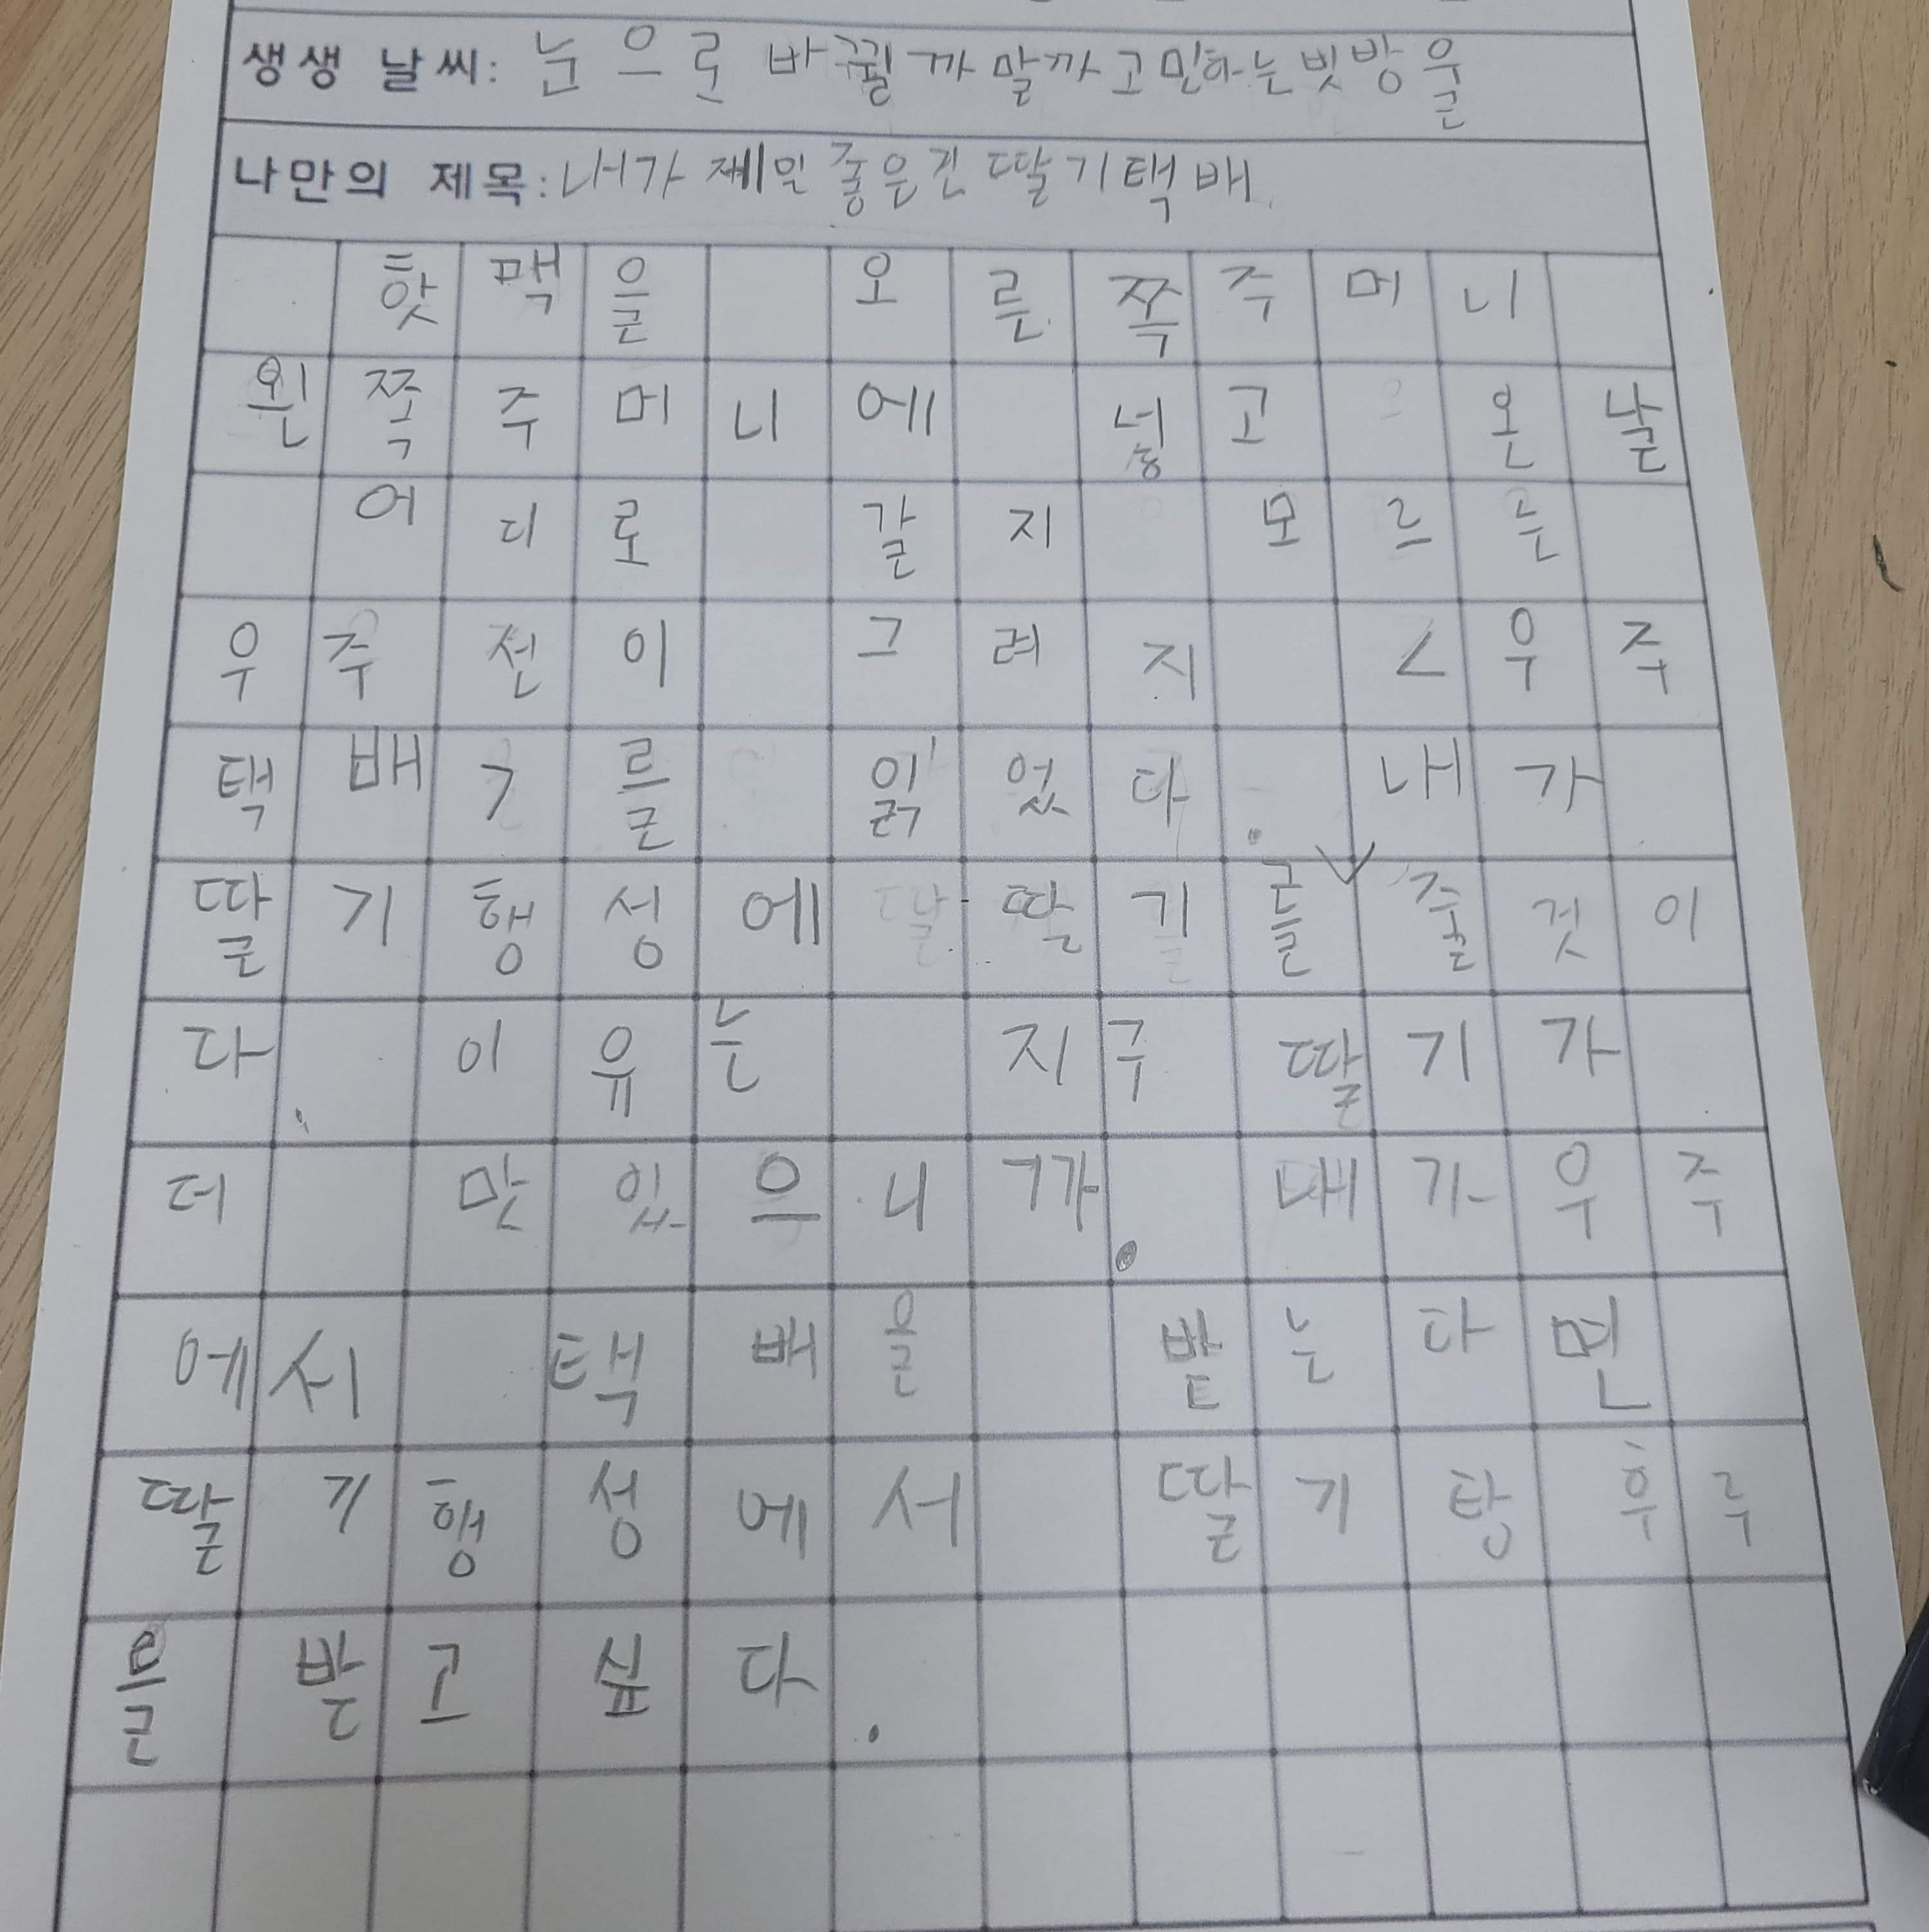 생생 날씨: 눈으로 바뀔까말까고민하는빗방울
나만의 제목: 내가 제일 좋은건 딸기택배
핫맥을 오른쪽주머니
왼쪽주머니에 넣고 온날
어디로 갈지 모르는
우주전이 그려지 <우주
택배>를 읽었다. 내가
딸기행성에 딸기를 줄것이
다. 이유는 지구딸기가
더 맛있으니까. 내가우주
에서 택배을 밭는다면
딸기행성에서 딸기탕후루
를 받고싶다.